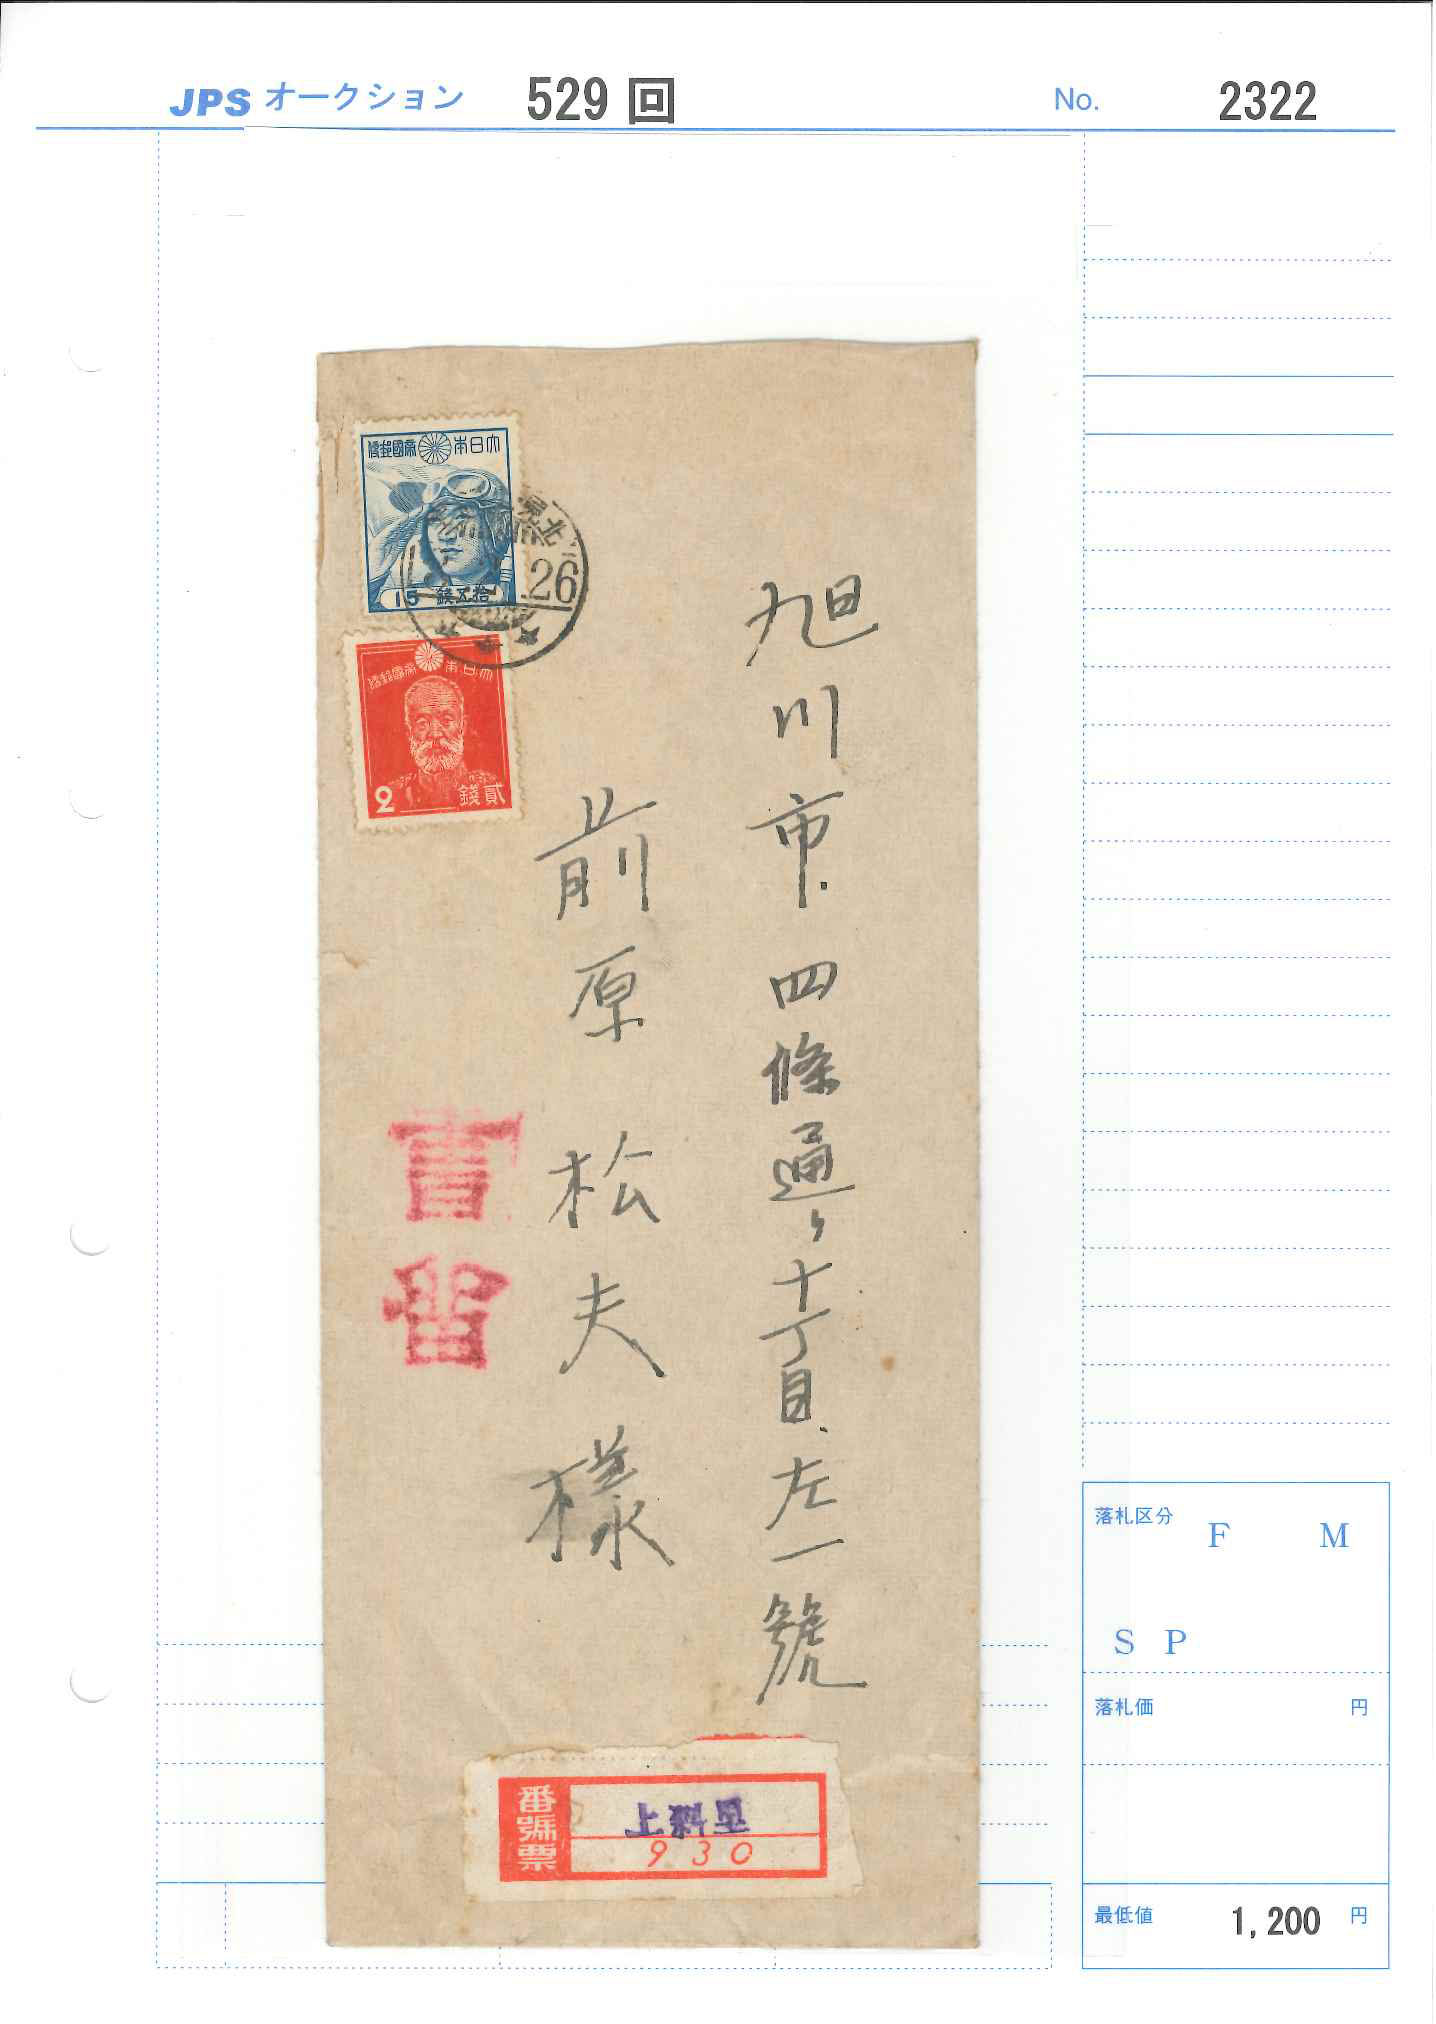 JPS オークション 529 回 No. 2322
大日本帝國郵便
15 拾五錢
26
大日本帝國郵便
2 貳錢
旭川市四條通り十丁目、左一號
前原松夫様
書留
番號票
930
落札区分 F M
S P
落札価 円
最低値 1,200 円